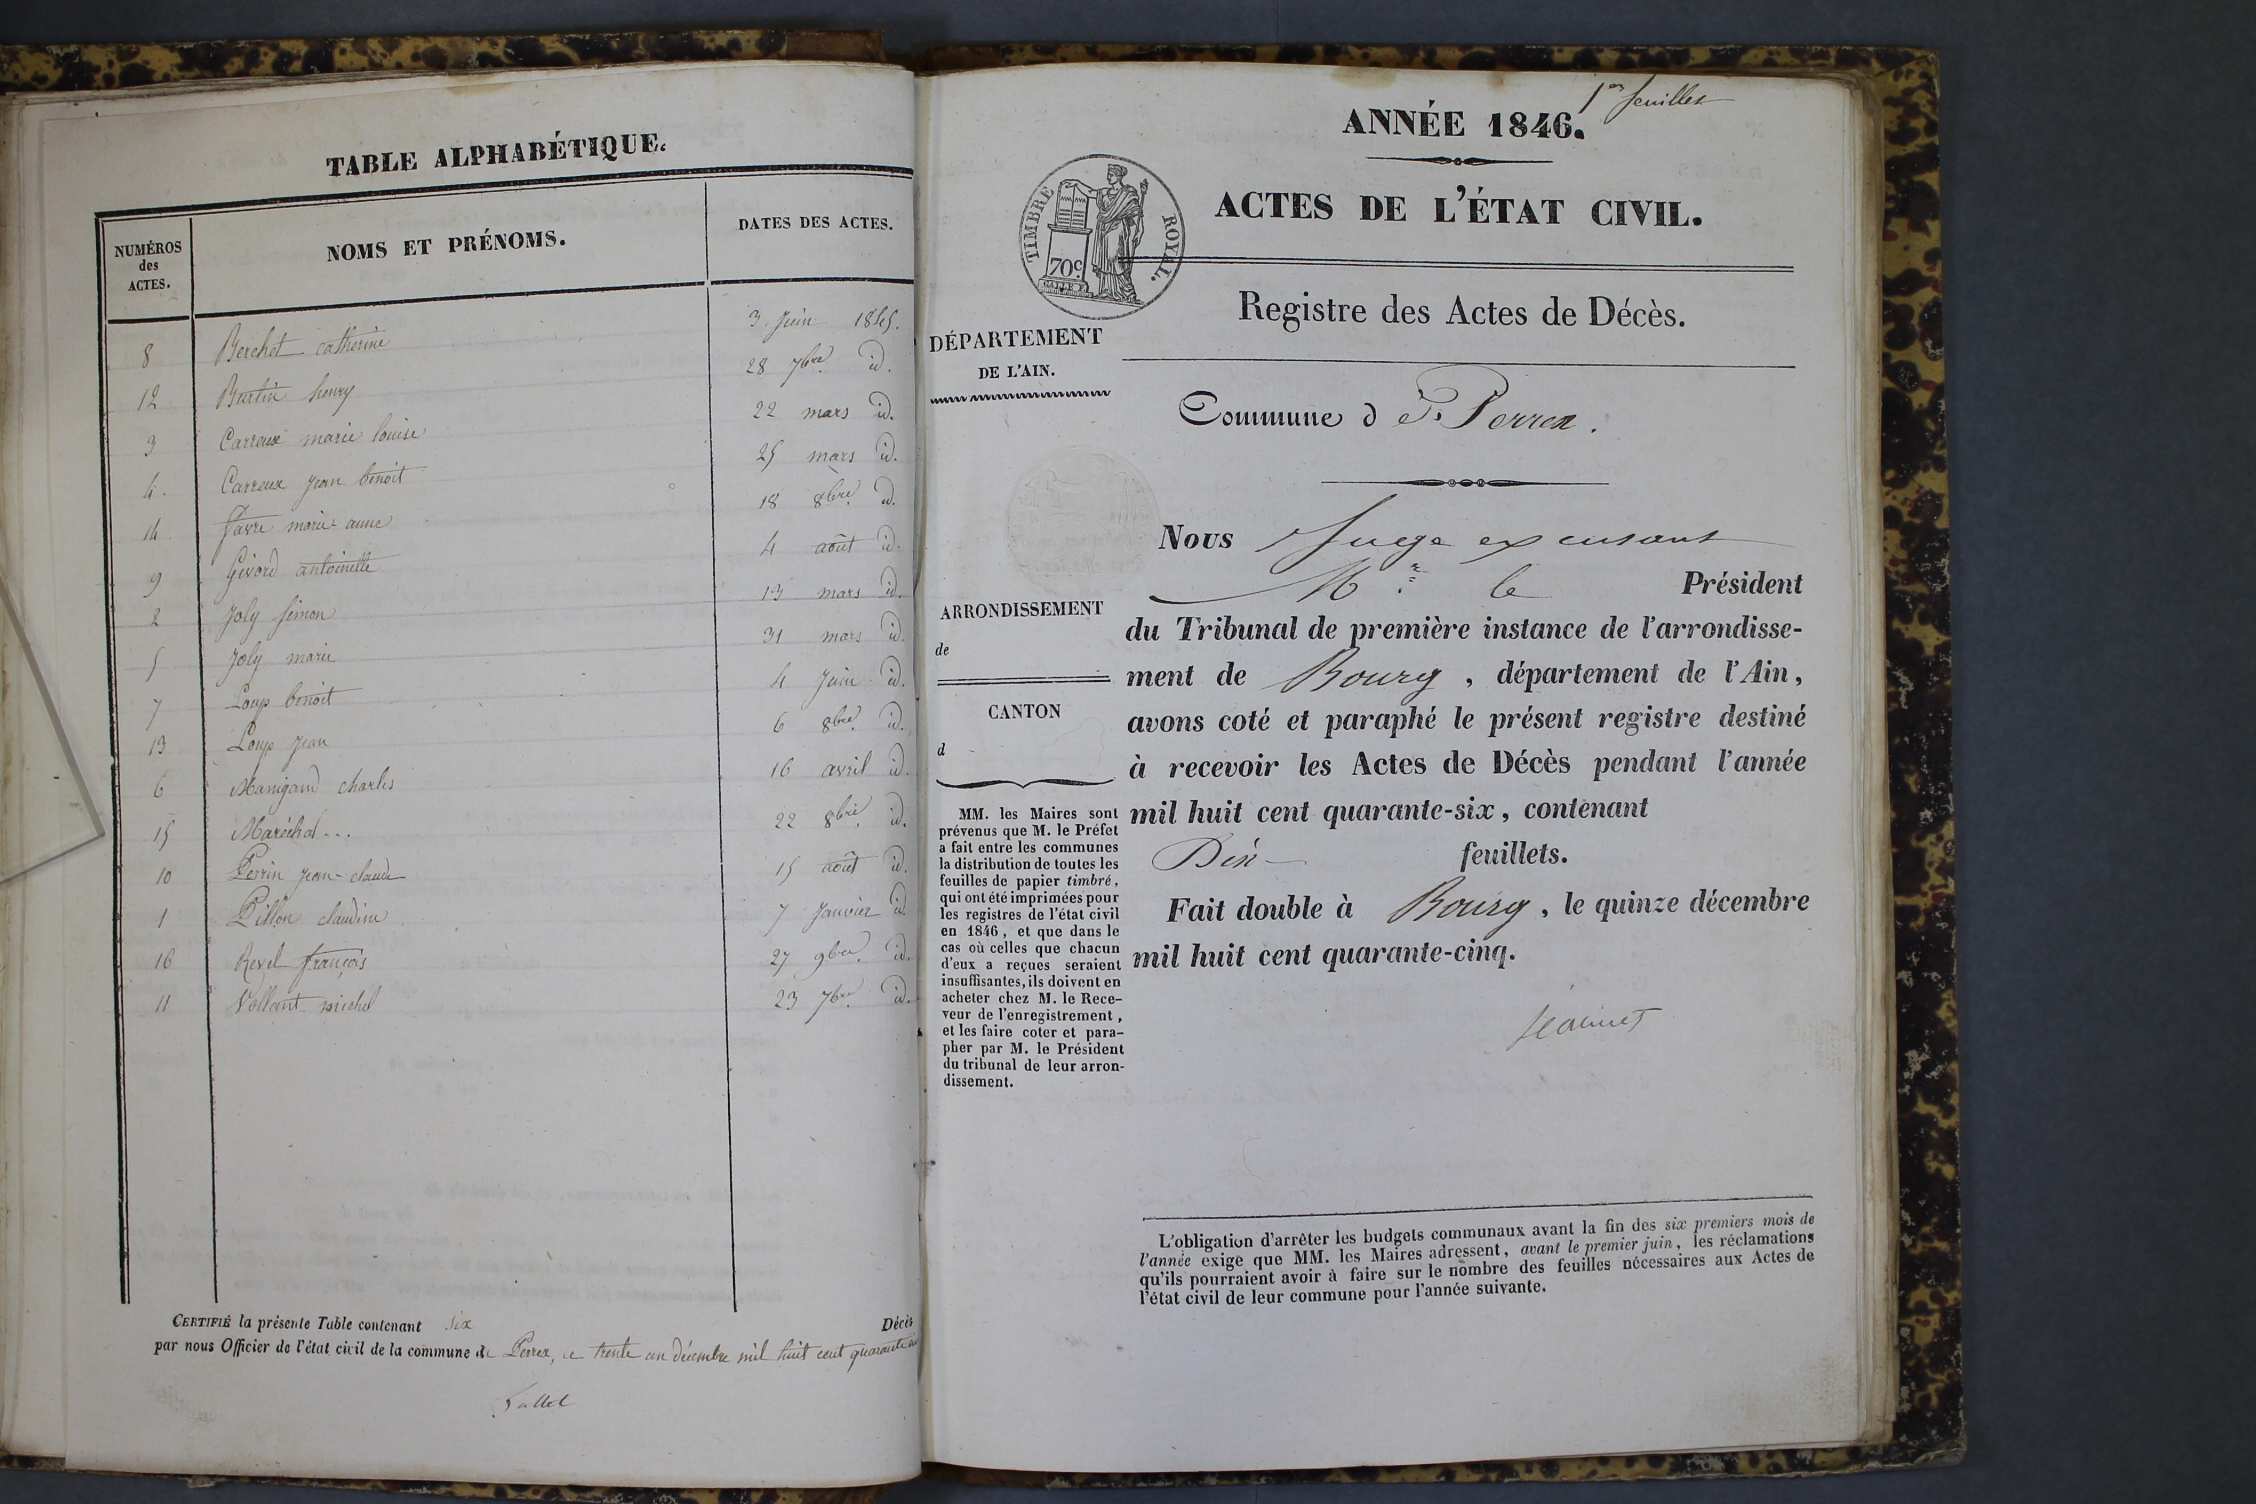 TABLE ALPHABÉTIQUE.
NUMÉROS des ACTES. NOMS ET PRÉNOMS. DATES DES ACTES.
8 Berchet catherine 3 Juin 1845.
12 Burtin henry 28 7bre id.
3 Carreux marie louise 22 mars id.
4. Carreux jean benoit 25 mars id.
14 favre marie-anne 18 8bre id.
9 Givord antoinette 4 août id.
2 Joly simon 13 mars id.
5 Joly marie 31 mars id.
7 Loup benoit 4 Juin id.
13 Loup jean 6 8bre id.
6 Manigand charles 16 avril id.
15 Maréchal... 22 8bre id.
10 Perrin jean-claude 15 août id.
1 Pillon claudine 7 Janvier id.
16 Revel françois 27 9bre id.
11 Vollant michel 23 7bre id.
CERTIFIÉ la présente Table contenant six Décès
par nous Officier de l'état civil de la commune de Perrex, ce trente un décembre mil huit cent quarante
1er feuillet
ANNÉE 1846.
ACTES DE L'ÉTAT CIVIL.
TIMBRE ROYAL.
70c
Registre des Actes de Décès.
DÉPARTEMENT
DE L'AIN.
Commune d Perrex.
Nous Juge excusant
Mr le Président
du Tribunal de première instance de l'arrondisse-
ment de Bourg, département de l'Ain,
avons coté et paraphé le présent registre destiné
à recevoir les Actes de Décès pendant l'année
mil huit cent quarante-six, contenant
Dix feuillets.
Fait double à Bourg, le quinze décembre
mil huit cent quarante-cinq.
ARRONDISSEMENT
de
CANTON
d
MM. les Maires sont
prévenus que M. le Préfet
a fait entre les communes
la distribution de toutes les
feuilles de papier timbré,
qui ont été imprimées pour
les registres de l'état civil
en 1846, et que dans le
cas où celles que chacun
d'eux a reçues seraient
insuffisantes, ils doivent en
acheter chez M. le Rece-
veur de l'enregistrement,
et les faire coter et para-
pher par M. le Président
du tribunal de leur arron-
dissement.
L'obligation d'arrêter les budgets communaux avant la fin des six premiers mois de
l'année exige que MM. les Maires adressent, avant le premier juin, les réclamations
qu'ils pourraient avoir à faire sur le nombre des feuilles nécessaires aux Actes de
l'état civil de leur commune pour l'année suivante.